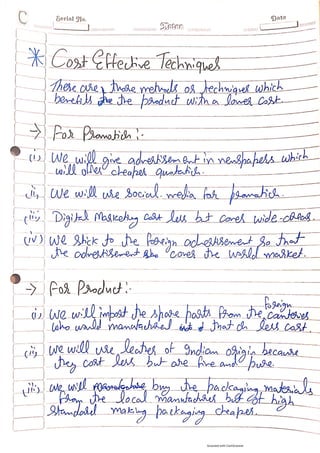 C
Serial No.
Date
* Cost Effective Techniques
These are those methods or techniques which
benefits the product with a lower cost.
→ For Promotion :-
(i) We will give advertisement in newspapers which
will offer cheaper quotation.
(ii) We will use social media for promotion.
(iii) Digital Marketing cost less but cores wide-
(iv) We stick to the foreign advertisement so that
the advertisement also cores the world market.
→ For Product :-
(i) We will import the spare parts from the foreign
who would manufactured that at less cost.
(ii) We will use leather of Indian origin because
they cost less but are fine and pure.
(iii) We will buy the packaging materials
from the local manufactures but of high
standard making packaging cheaper.
Scanned with CamScanner